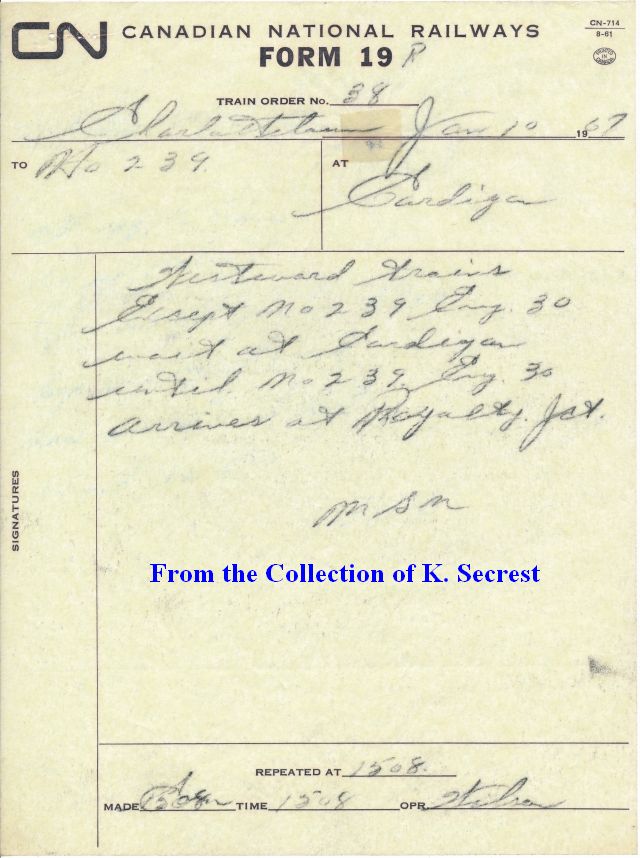 CN CANADIAN NATIONAL RAILWAYS
FORM 19 R
CN-714
8-61
PRINTED IN CANADA
TRAIN ORDER NO. 38
Charlottetown Jan 10 1967
TO No 239.
AT Cardigan
Westward trains
Except No 239 Eng. 30
wait at Cardigan
until No 239 Eng. 30
arrives at Royalty Jct.
M S M
SIGNATURES
From the Collection of K. Secrest
REPEATED AT 1508.
MADE Com TIME 1508 OPR. Wilson